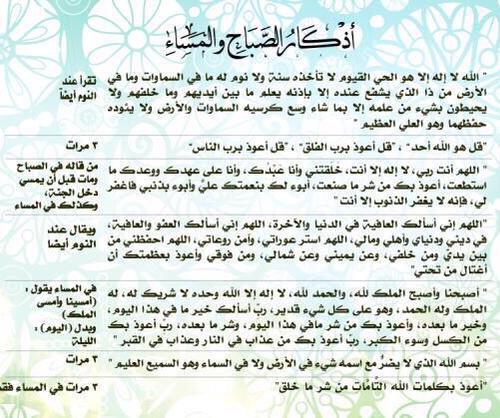 أذكار الصباح والمساء
" الله لا إله إلا هو الحي القيوم لا تأخذه سنة ولا نوم له ما في السماوات وما في
الأرض من ذا الذي يشفع عنده إلا بإذنه يعلم ما بين أيديهم وما خلفهم ولا
يحيطون بشيء من علمه إلا بما شاء وسع كرسيه السماوات والأرض ولا يئوده
حفظهما وهو العلي العظيم "
تقرأ عند
النوم أيضاً
"قل هو الله أحد" ، "قل أعوذ برب الفلق" ، "قل أعوذ برب الناس"
٣ مرات
" اللهم أنت ربي، لا إله إلا أنت، خلقتني وأنا عبدك، وأنا على عهدك ووعدك ما
استطعت، أعوذ بك من شر ما صنعت، أبوء لك بنعمتك علي وأبوء بذنبي فاغفر
لي، فإنه لا يغفر الذنوب إلا أنت "
من قاله في الصباح
ومات قبل أن يمسي
دخل الجنة،
وكذلك في المساء
"اللهم إني أسألك العافية في الدنيا والآخرة، اللهم إني أسألك العفو والعافية،
في ديني ودنياي وأهلي ومالي، اللهم استر عوراتي، وآمن روعاتي، اللهم احفظني من
بين يدي ومن خلفي، وعن يميني وعن شمالي، ومن فوقي وأعوذ بعظمتك أن
أغتال من تحتي"
ويقال عند
النوم أيضا
" أصبحنا وأصبح الملك لله، والحمد لله، لا إله إلا الله وحده لا شريك له، له
الملك وله الحمد، وهو على كل شيء قدير، رب أسألك خير ما في هذا اليوم،
وخير ما بعده، وأعوذ بك من شر ما في هذا اليوم، وشر ما بعده، رب أعوذ بك
من الكسل وسوء الكبر، رب أعوذ بك من عذاب في النار وعذاب في القبر "
في المساء يقول :
(أمسينا وأمسى
الملك)
ويبدل (اليوم) :
الليلة
" بسم الله الذي لا يضر مع اسمه شيء في الأرض ولا في السماء وهو السميع العليم "
٣ مرات
"أعوذ بكلمات الله التامات من شر ما خلق"
٣ مرات في المساء فقط